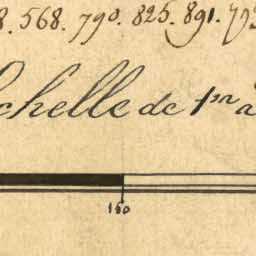 8. 568. 790. 825. 891. 793
Echelle de 1.m a
160